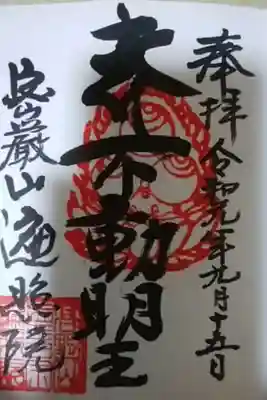 奉拝 令和元年九月十五日
不動明王
厳山遍照院